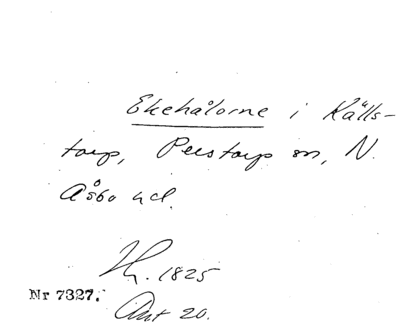 Ekehålorne i Källs-
torp, Perstorp sn, N.
Åsbo hd.
Th. 1825
Nr 7327.
Akt 20.